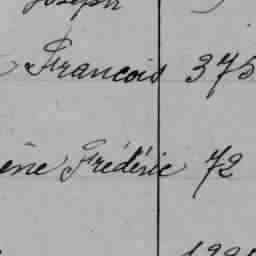 Joseph
François 375
ène Frédéric 72